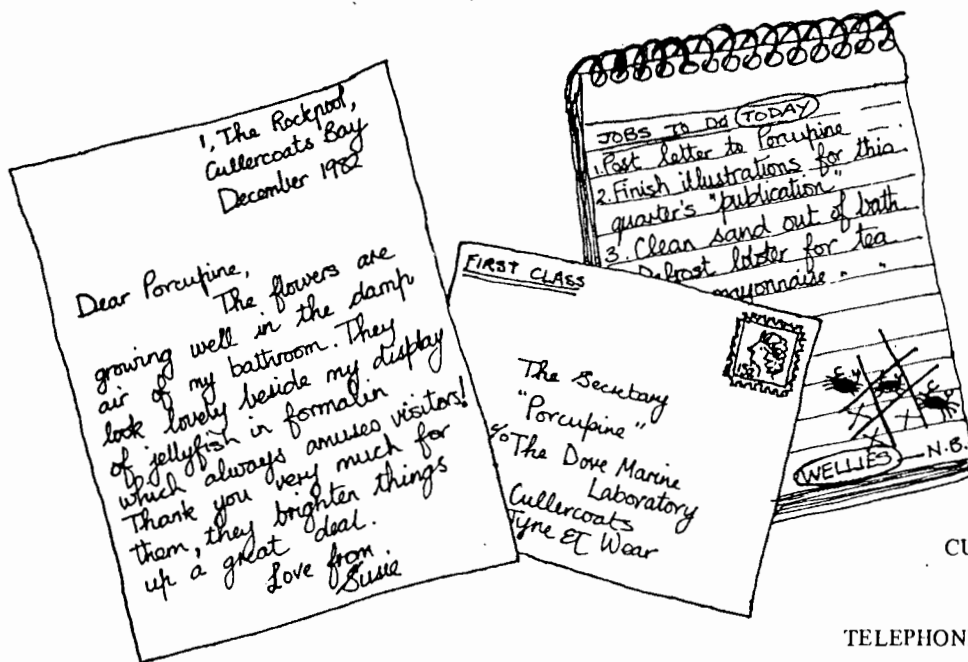 1, The Rockpool,
Cullercoats Bay
December 1982
Dear Porcupine,
The flowers are
growing well in the damp
air of my bathroom. They
look lovely beside my display
of jellyfish in formalin
which always amuses visitors!
Thank you very much for
them, they brighten things
up a great deal.
Love from
Susie
FIRST CLASS
The Secretary
"Porcupine"
c/o The Dove Marine
Laboratory
Cullercoats
Tyne & Wear
JOBS TO DO TODAY
1. Post letter to Porcupine
2. Finish illustrations for this
quarter's "publication"
3. Clean sand out of bath
Defrost lobster for tea
mayonnaise " "
WELLIES — N.B.
CU
TELEPHON